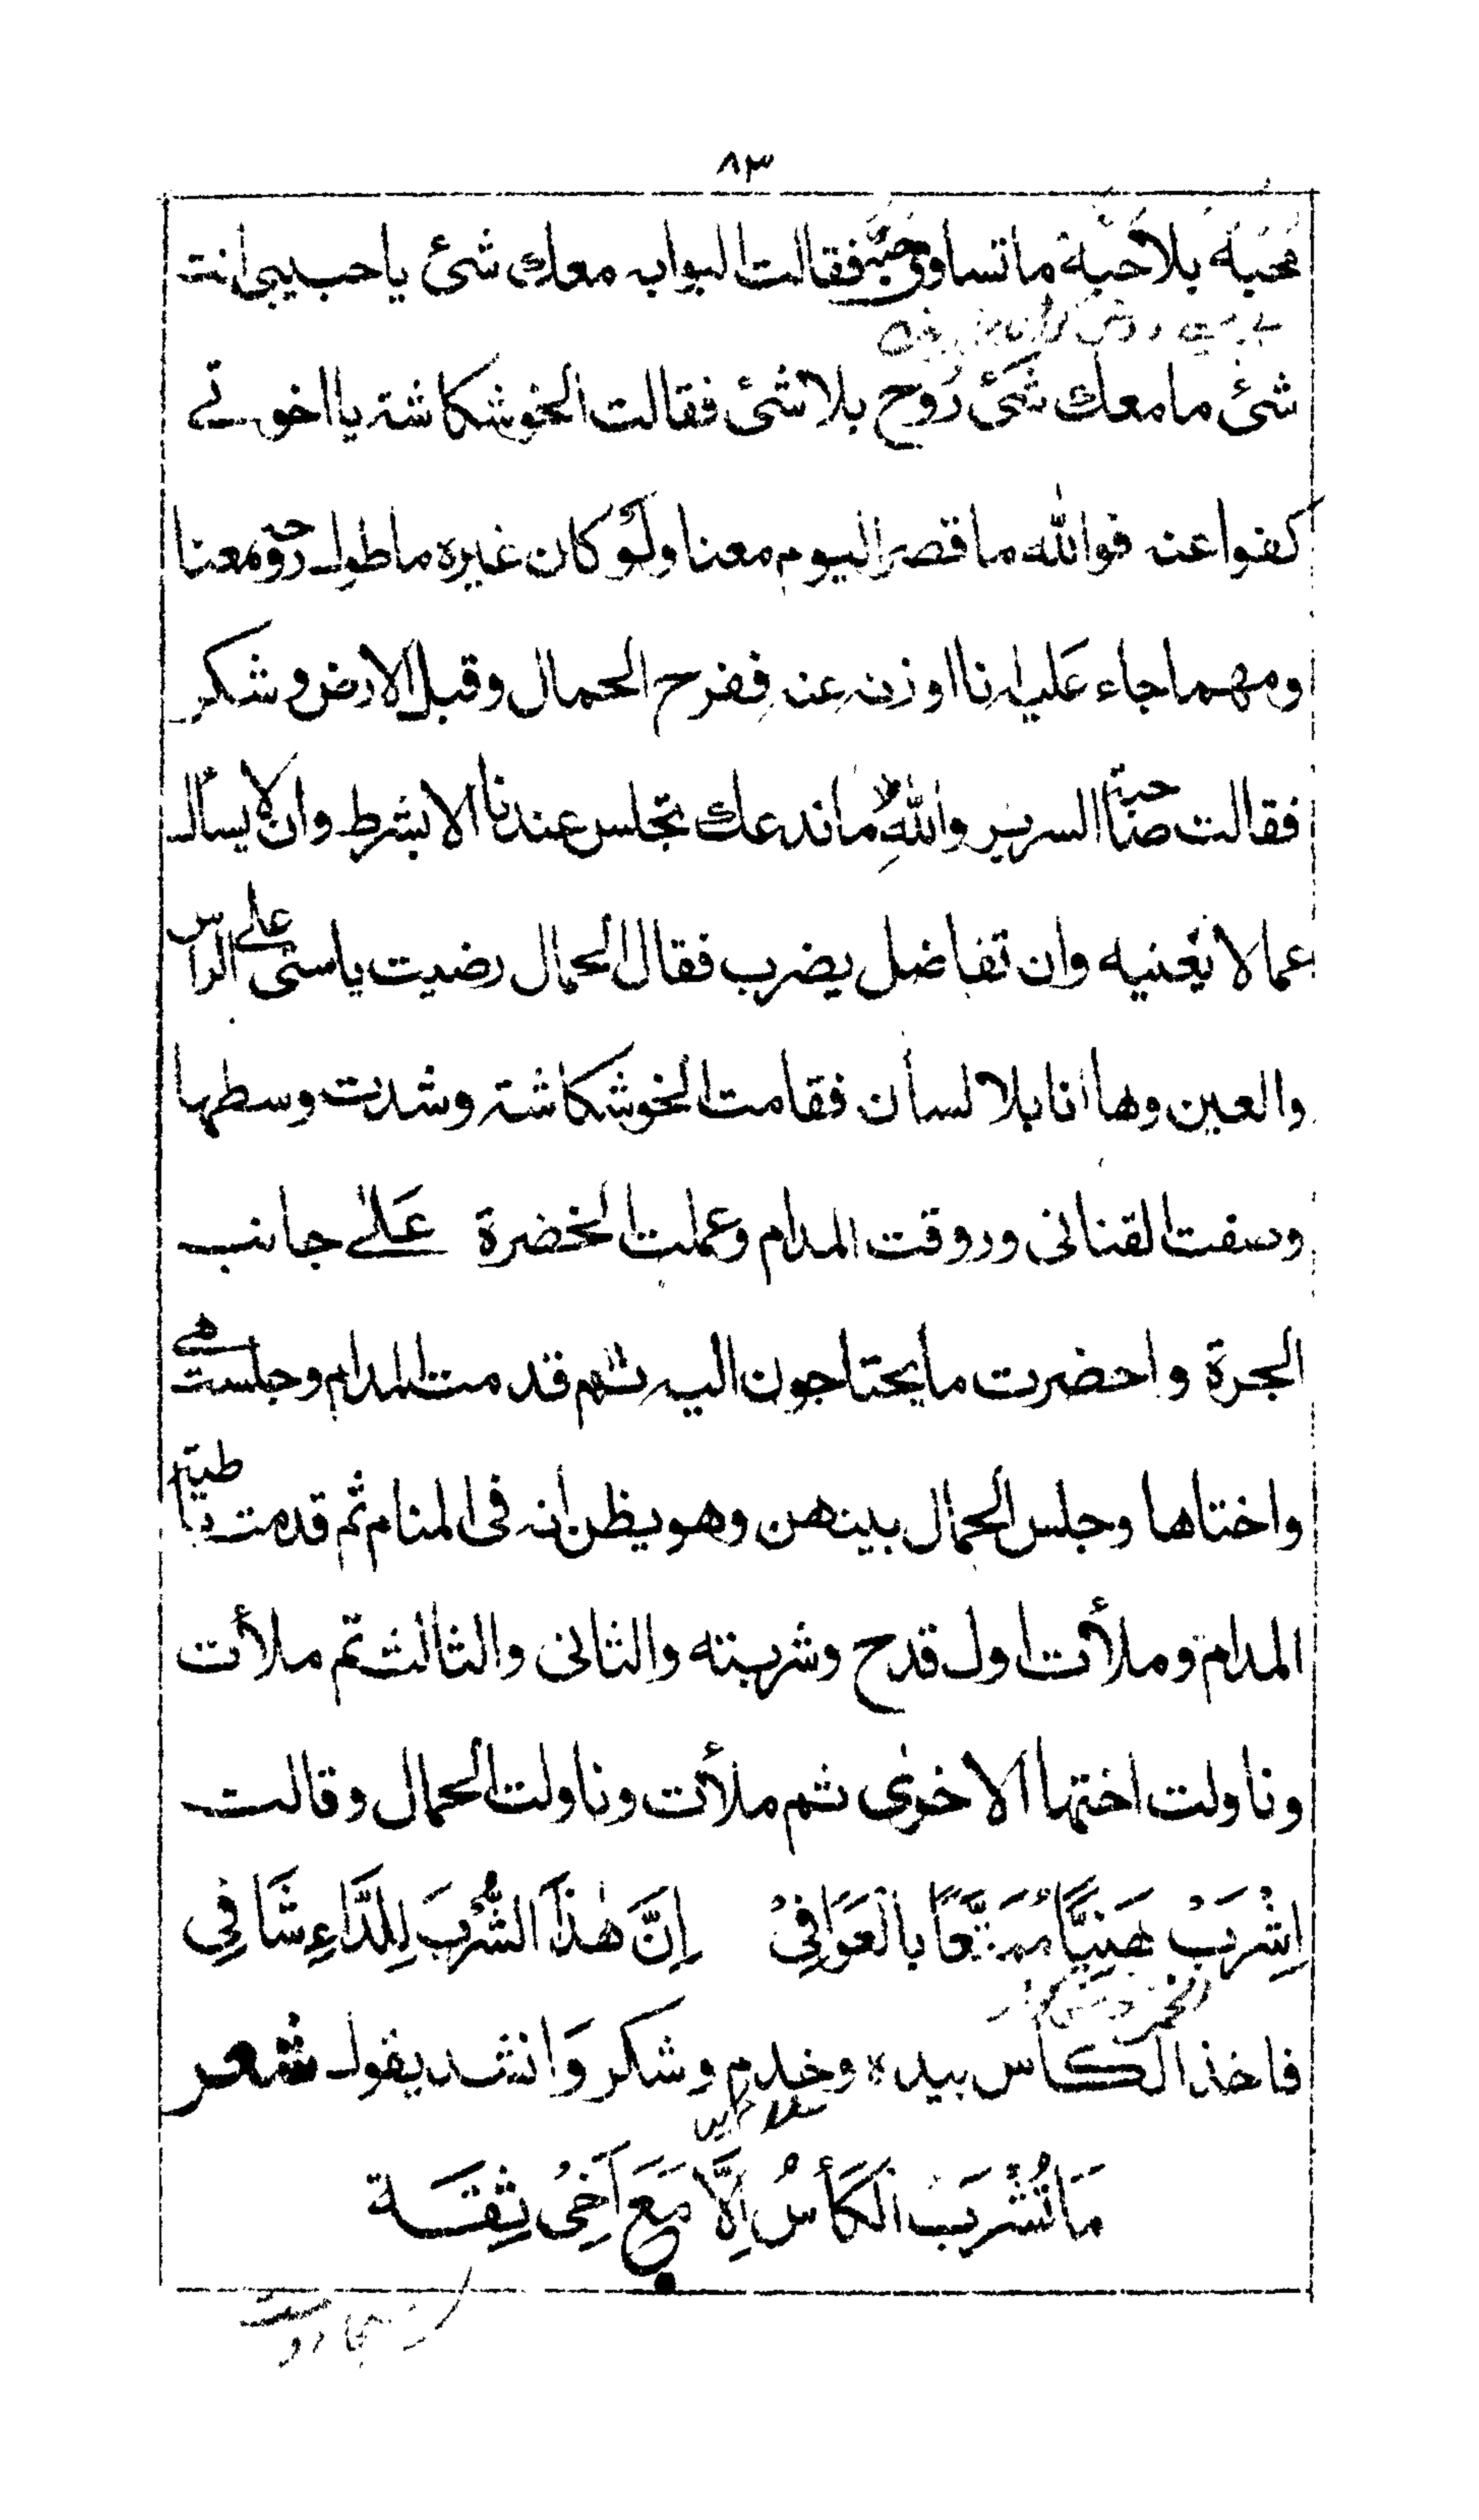 ٨٣
محبة بلا حبة ما تساوى حبة فقالت البوابه معك شئ يا حبيبى انت
شئ ما معك شئ روح بلا شئ فقالت الخوشكاشة يا اخوتے
كفوا عنه فوالله ما قصر اليوم معنا ولو كان غيره ما طول روحه معنا
ومهما جاء عليه انا اوزنه عنه ففرح الحمال وقبل الارض وشكر
فقالت صاحبة السرير والله ما ندعك تجلس عندنا الا بشرط وان لا يسأل
عما لا يعنيه وان تفاضل يضرب فقال الحمال رضيت يا ستى على الراس
والعين وها انا بلا لسان فقامت الخوشكاشة وشدت وسطها
وصفت القنانى وروقت المدام وعملت الخضرة عَلٰے جانب
الجرة واحضرت ما يحتاجون اليه ثم قدمت المدام وجلست هى
واختاها وجلس الحمال بينهن وهو يظن انه فى المنام ثم قدمت باطية
المدام وملأت اول قدح وشربته والثانى والثالث ثم ملأت
وناولت اختها الاخرى ثم ملأت وناولت الحمال وقالت
اِشْرَبْ هَنِيَّا مُمَتَّعًا بالْعَوَافِىْ اِنَّ هٰذَا الشُّرْبَ لِلدَّاءِ شَافِى
فاخذ الكاس بيده وخدم وشكر وَانشد يقول شعر
مَا تُشْرَبُ الْكَأْسُ اِلَّا مَعَ اَخِىْ ثِقَـة